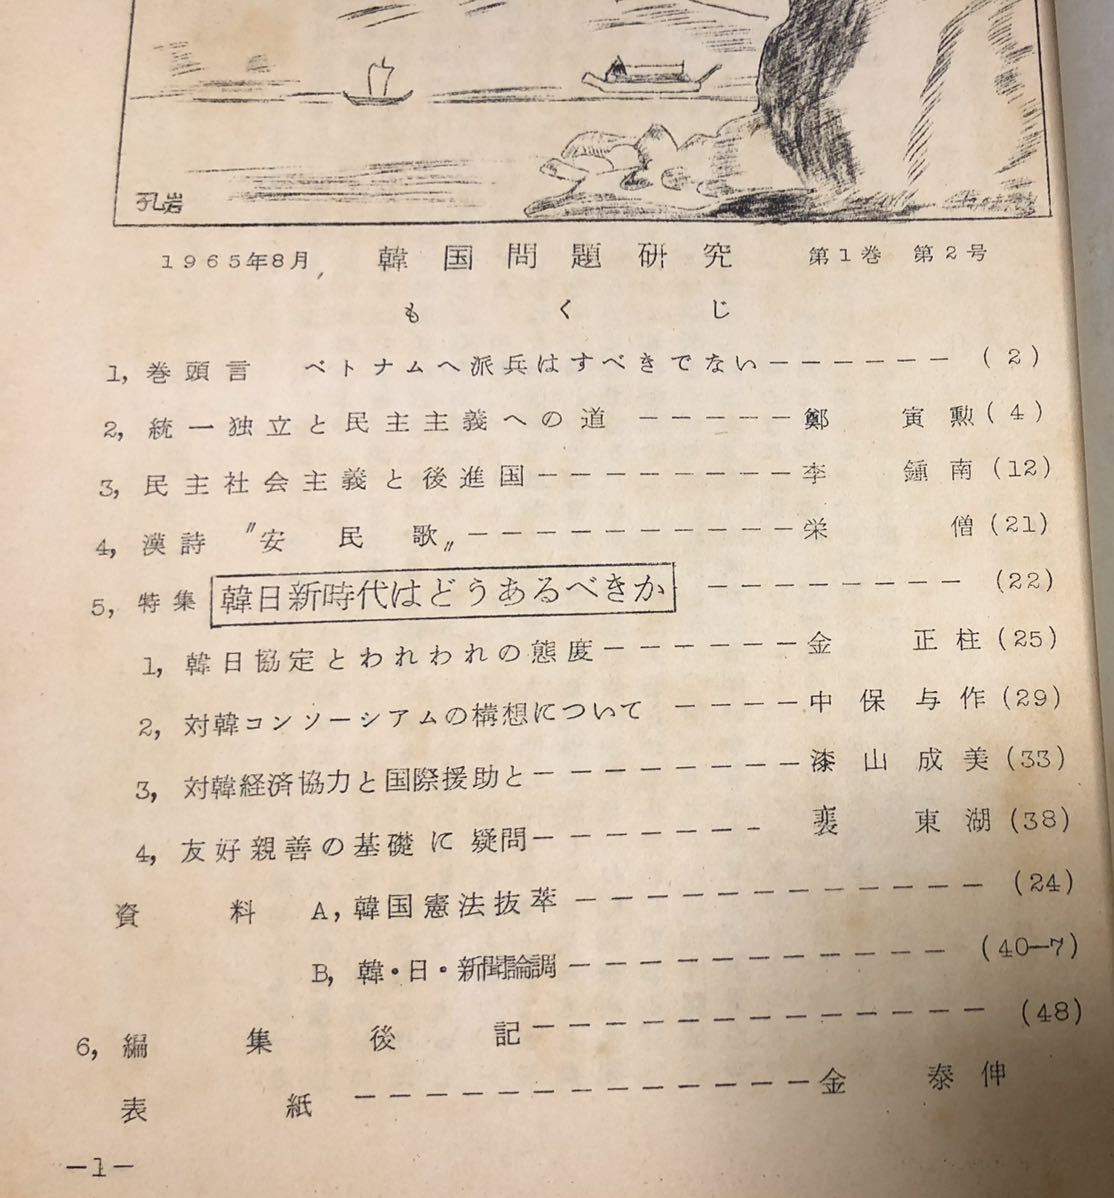 孔岩
1965年8月 韓国問題研究 第1巻 第2号
もくじ
1, 巻頭言 ベトナムへ派兵はすべきでない------ (2)
2, 統一独立と民主主義への道 ----- 鄭 寅勲 (4)
3, 民主社会主義と後進国-------- 李 鍾南 (12)
4, 漢詩 〝安民歌〟---------- 栄 僧 (21)
5, 特集 韓日新時代はどうあるべきか -------- (22)
1, 韓日協定とわれわれの態度------ 金 正柱 (25)
2, 対韓コンソーシアムの構想について ---- 中保与作 (29)
3, 対韓経済協力と国際援助と-------- 漆山成美 (33)
4, 友好親善の基礎に疑問------- 裵 東湖 (38)
資料 A, 韓国憲法抜萃 ------------ (24)
B, 韓・日・新聞論調 ----------- (40-7)
6, 編集後記-------------- (48)
表紙 ------------- 金 泰伸
-1-